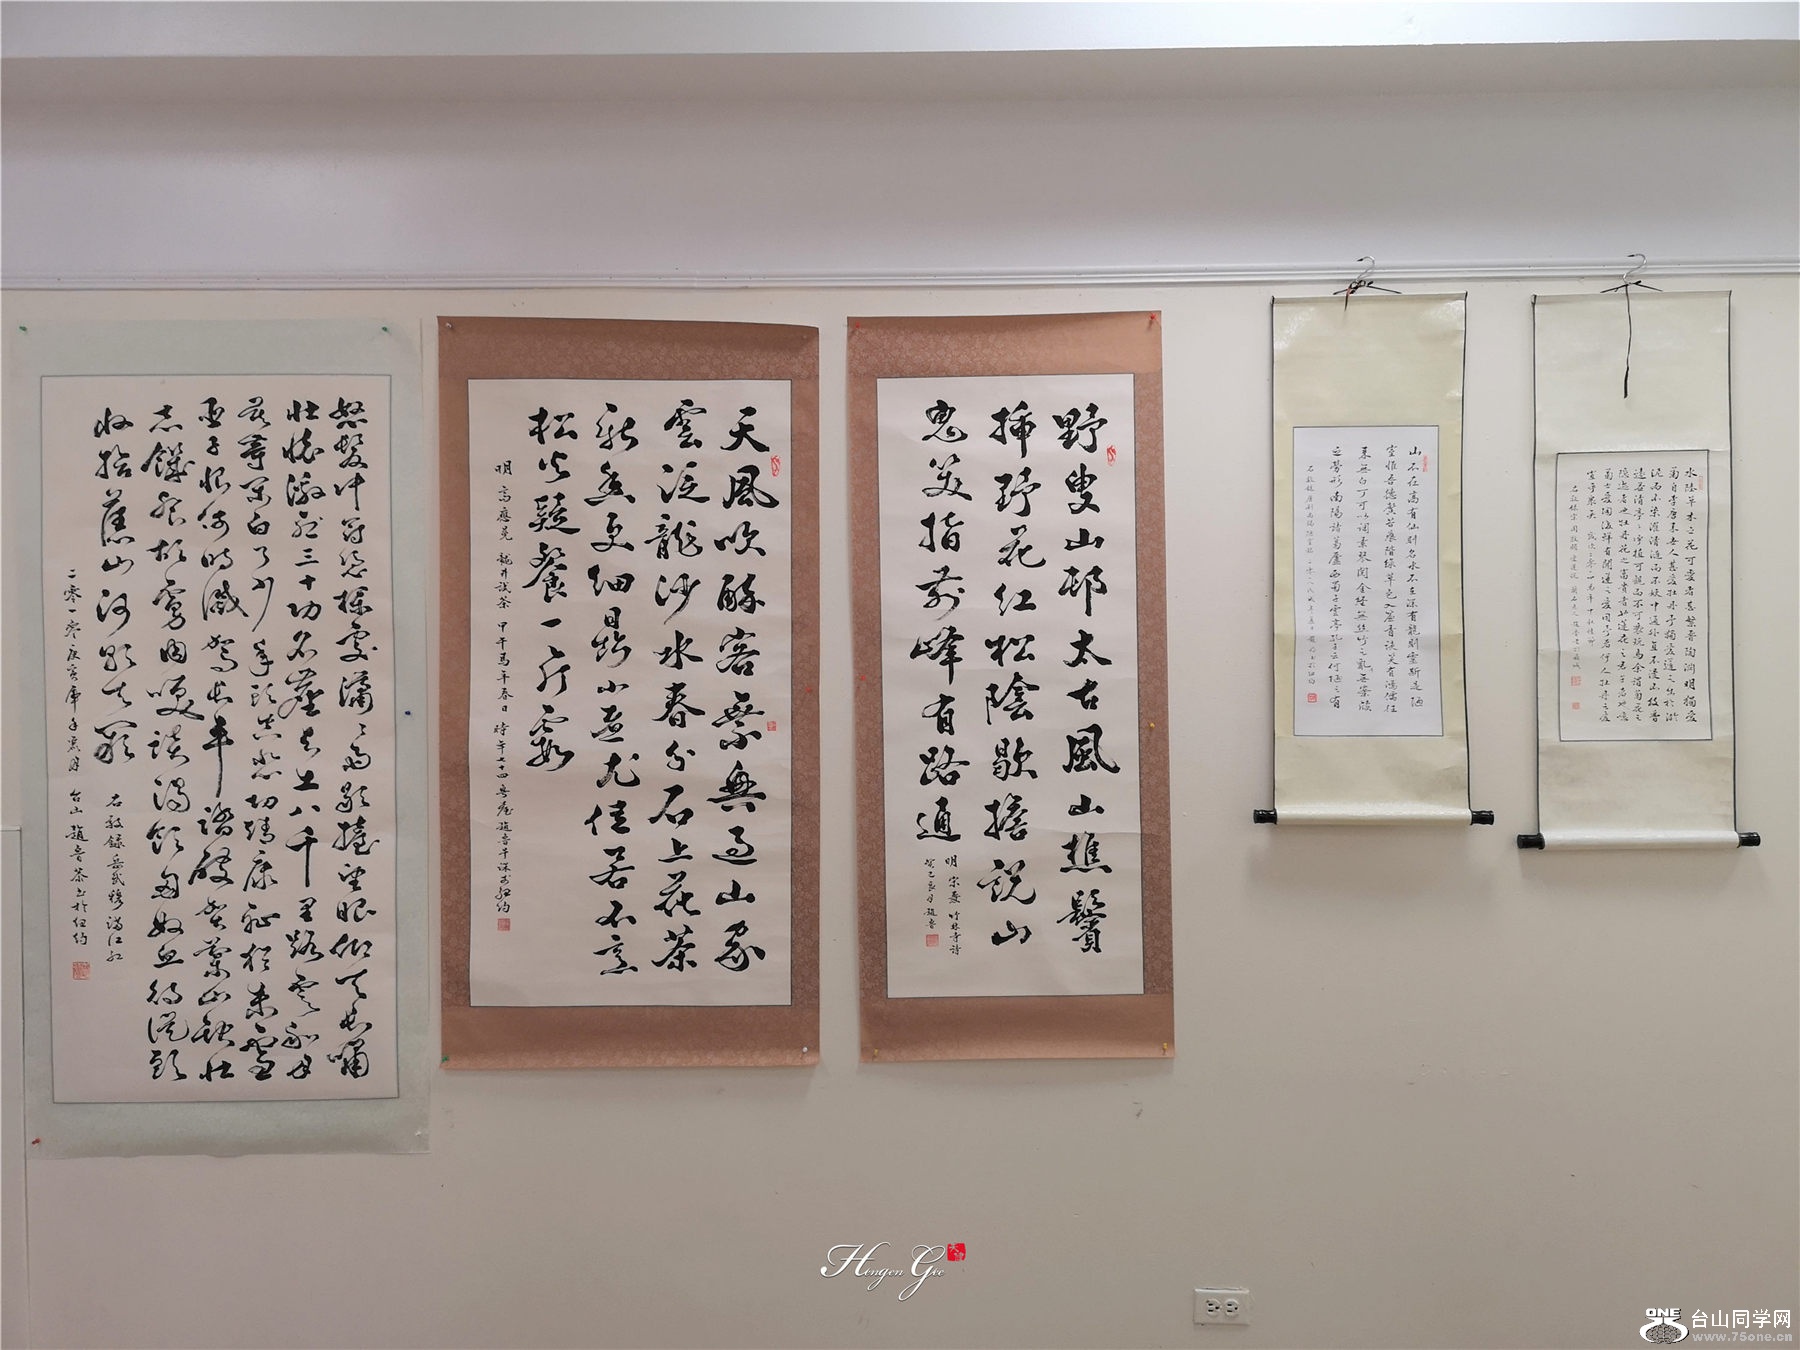 怒髮沖冠凭欄處瀟瀟雨歇擡望眼仰天長嘯
壯懷激烈三十功名塵與土八千里路雲和月
莫等閒白了少年頭空悲切靖康恥猶未雪
臣子恨何時滅駕長車踏破賀蘭山缺壯
志饑餐胡虜肉笑談渴飲匈奴血待從頭
收拾舊山河朝天闕
右敬錄岳武穆滿江紅
二零一零庚寅虎年
天風吹醉客乘興過山家
雲泛龍沙水春分石上花茶
新香更細鼎小煮尤佳若不烹
松火疑餐一片霞
明 高應冕 龍井試茶 甲午馬年春日 時年七十四
野叟山邨太古風山樵鬢
插野花紅松陰歇擔說山
鬼笑指前峰有路通
明 竹林寺詩
山不在高有仙則名水不在深有龍則靈斯是陋
室惟吾德馨苔痕階綠草色入簾青談笑有鴻儒往
來無白丁可以調素琴閱金經無絲竹之亂耳無案牘
之勞形南陽諸葛廬西蜀子雲亭孔子云何陋之有
水陸草木之花可愛者甚繁晉陶淵明獨愛
菊自李唐來世人甚愛牡丹予獨愛蓮之出於淤
泥而不染濯清漣而不妖中通外直不蔓不枝香
遠益清亭亭淨植可遠觀而不可褻玩焉余謂菊花之
隱逸者也牡丹花之富貴者也蓮花之君子者也噫
菊之愛陶後鮮有聞蓮之愛同予者何人牡丹之愛
宜乎眾矣
Hingen Gee
ONE
台山同学网
www.75one.cn